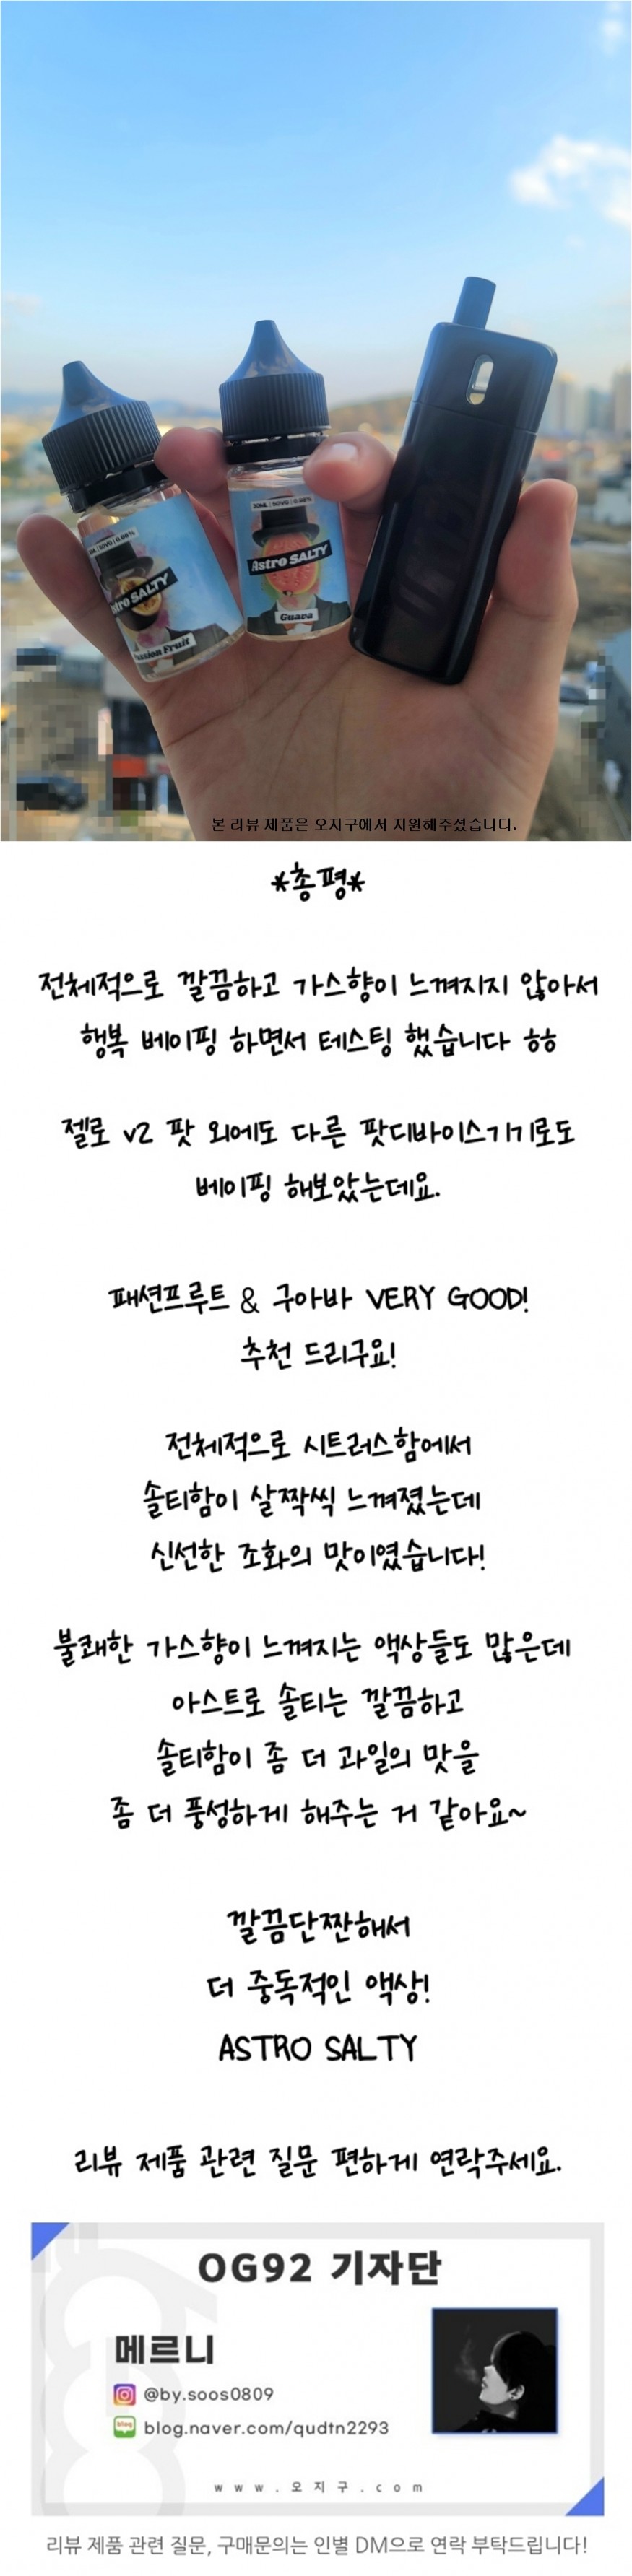 30ML | 50VG | 0.98%
Astro SALTY
Guava
Astro SALTY
Passion Fruit
본 리뷰 제품은 오지구에서 지원해주셨습니다.
*총평*
전체적으로 깔끔하고 가스향이 느껴지지 않아서
행복 베이핑 하면서 테스팅 했습니다 ㅎㅎ
젤로 v2 팟 외에도 다른 팟디바이스기기로도
베이핑 해보았는데요.
패션프루트 & 구아바 VERY GOOD!
추천 드리구요!
전체적으로 시트러스함에서
솔티함이 살짝씩 느껴졌는데
신선한 조화의 맛이였습니다!
불쾌한 가스향이 느껴지는 액상들도 많은데
아스트로 솔티는 깔끔하고
솔티함이 좀 더 과일의 맛을
좀 더 풍성하게 해주는 거 같아요~
깔끔단짠해서
더 중독적인 액상!
ASTRO SALTY
리뷰 제품 관련 질문 편하게 연락주세요.
OG92 기자단
메르니
@by.soos0809
blog
blog.naver.com/qudtn2293
www.오지구.com
리뷰 제품 관련 질문, 구매문의는 인별 DM으로 연락 부탁드립니다!